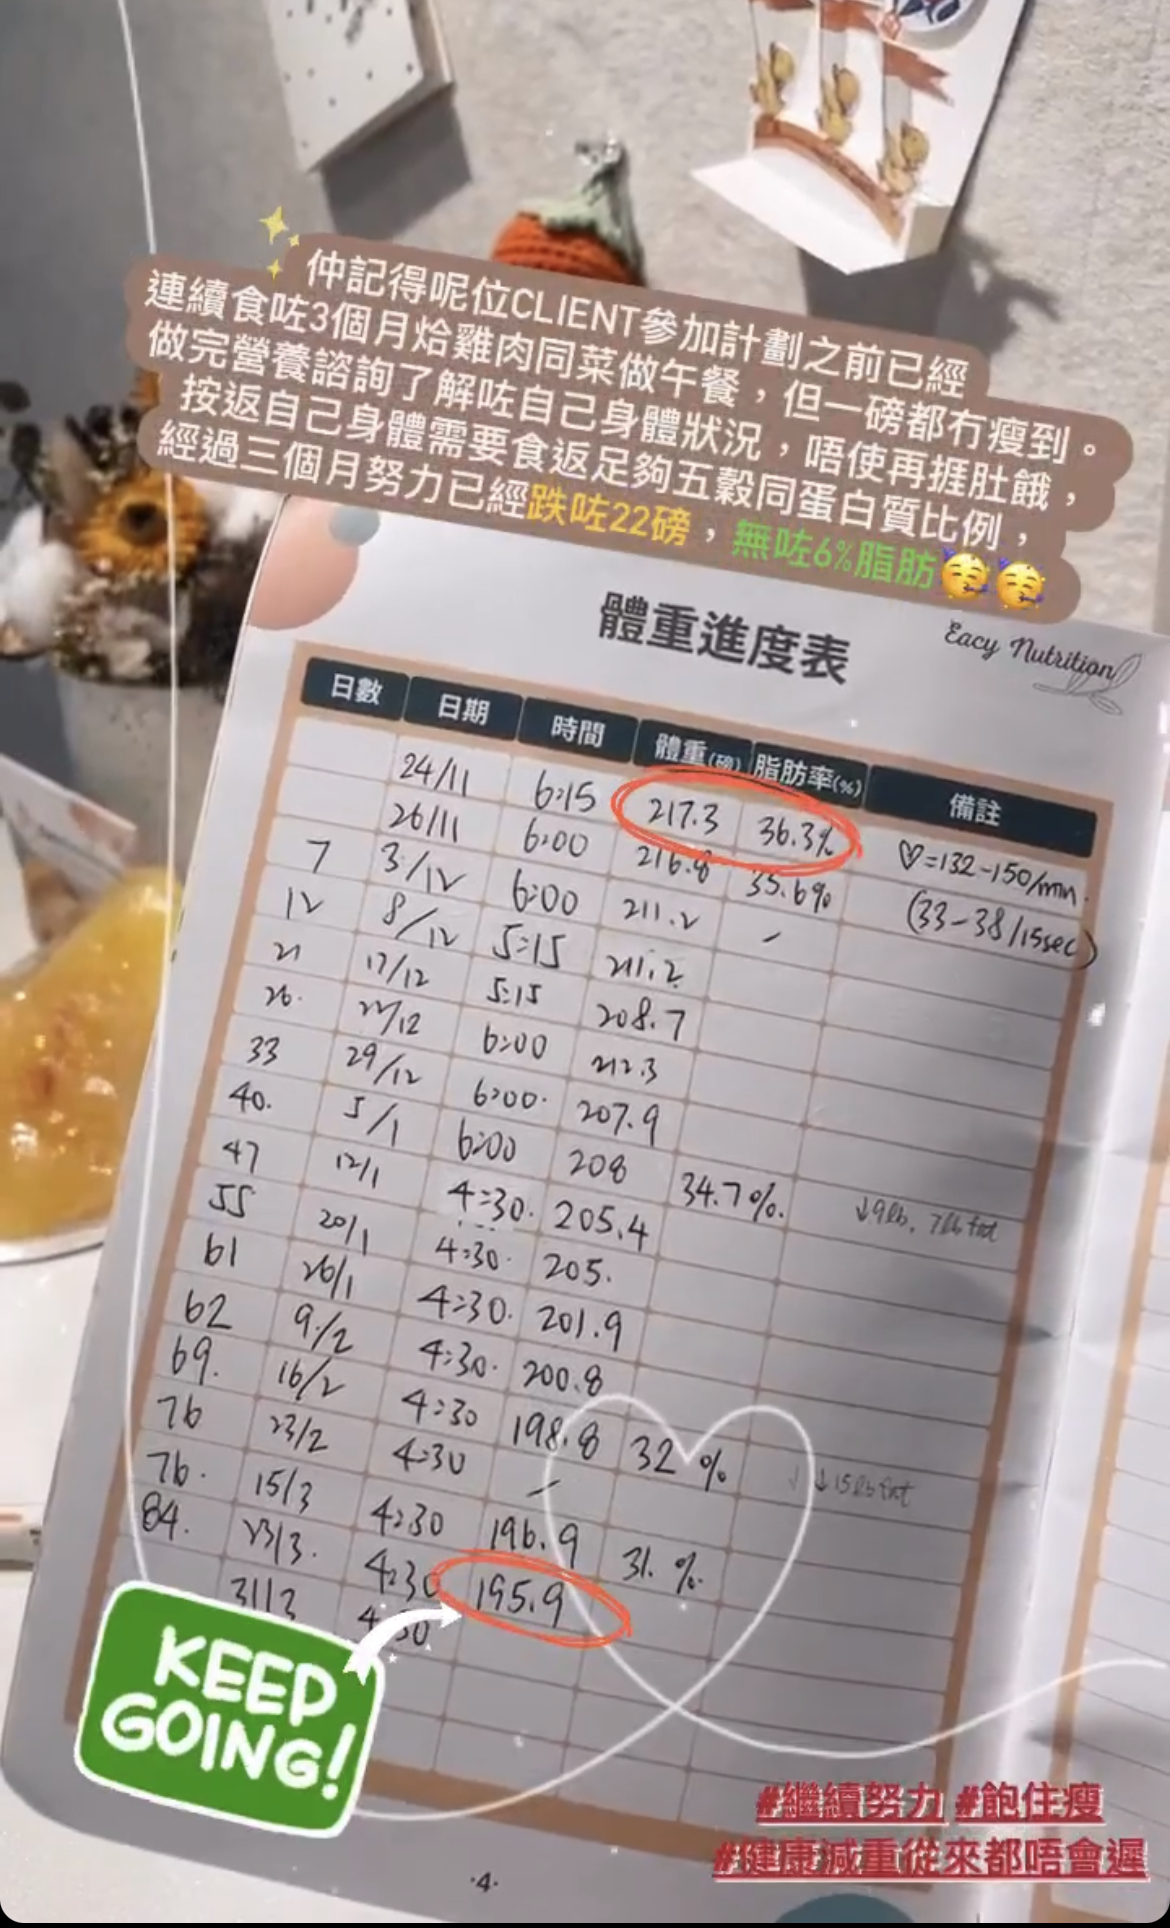 仲記得呢位CLIENT參加計劃之前已經
連續食咗3個月烚雞肉同菜做午餐，但一磅都冇瘦到。
做完營養諮詢了解咗自己身體狀況，唔使再捱肚餓，
按返自己身體需要食返足夠五穀同蛋白質比例，
經過三個月努力已經跌咗22磅，無咗6%脂肪🥳🥳
體重進度表
Eacy Nutrition
日數 日期 時間 體重(磅) 脂肪率(%) 備註
24/11 6:15 217.3 36.3% ♡=132-150/min.
26/11 6:00 216.8 35.6% (33-38/15sec)
7 3/12 6:00 211.2 -
12 8/12 5:15 211.2
21 17/12 5:15 208.7
26. 22/12 6:00 212.3
33 29/12 6:00. 207.9
40. 5/1 6:00 208
47 12/1 4:30. 205.4 34.7%. ↓9lb, 7lb fat
55 20/1 4:30. 205.
61 26/1 4:30. 201.9
62 9/2 4:30. 200.8
69. 16/2 4:30 198.8 32% ↓15lb fat
76 23/2 4:30 -
76. 15/3 4:30 196.9 31.%
84. 23/3. 4:30 195.9
31/3 4:30
KEEP
GOING!
#繼續努力 #飽住瘦
#健康減重從來都唔會遲
·4·